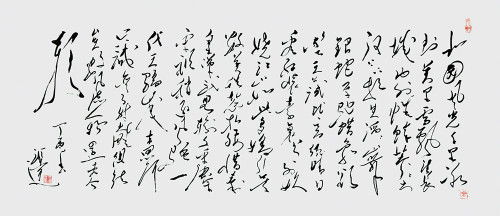 北國风光千里冰
封万里雪飘望长
城内外惟余莽莽大
河上下顿失滔滔山舞
银蛇原驰蜡象欲
与天公试比高须晴日
看红装素裹分外妖
娆江山如此多娇引无
数英雄竞折腰惜秦
皇汉武略输文采唐
宗宋祖稍逊风骚一
代天骄成吉思汗
只识弯弓射大雕俱往
矣数风流人物还看今
朝
丁酉